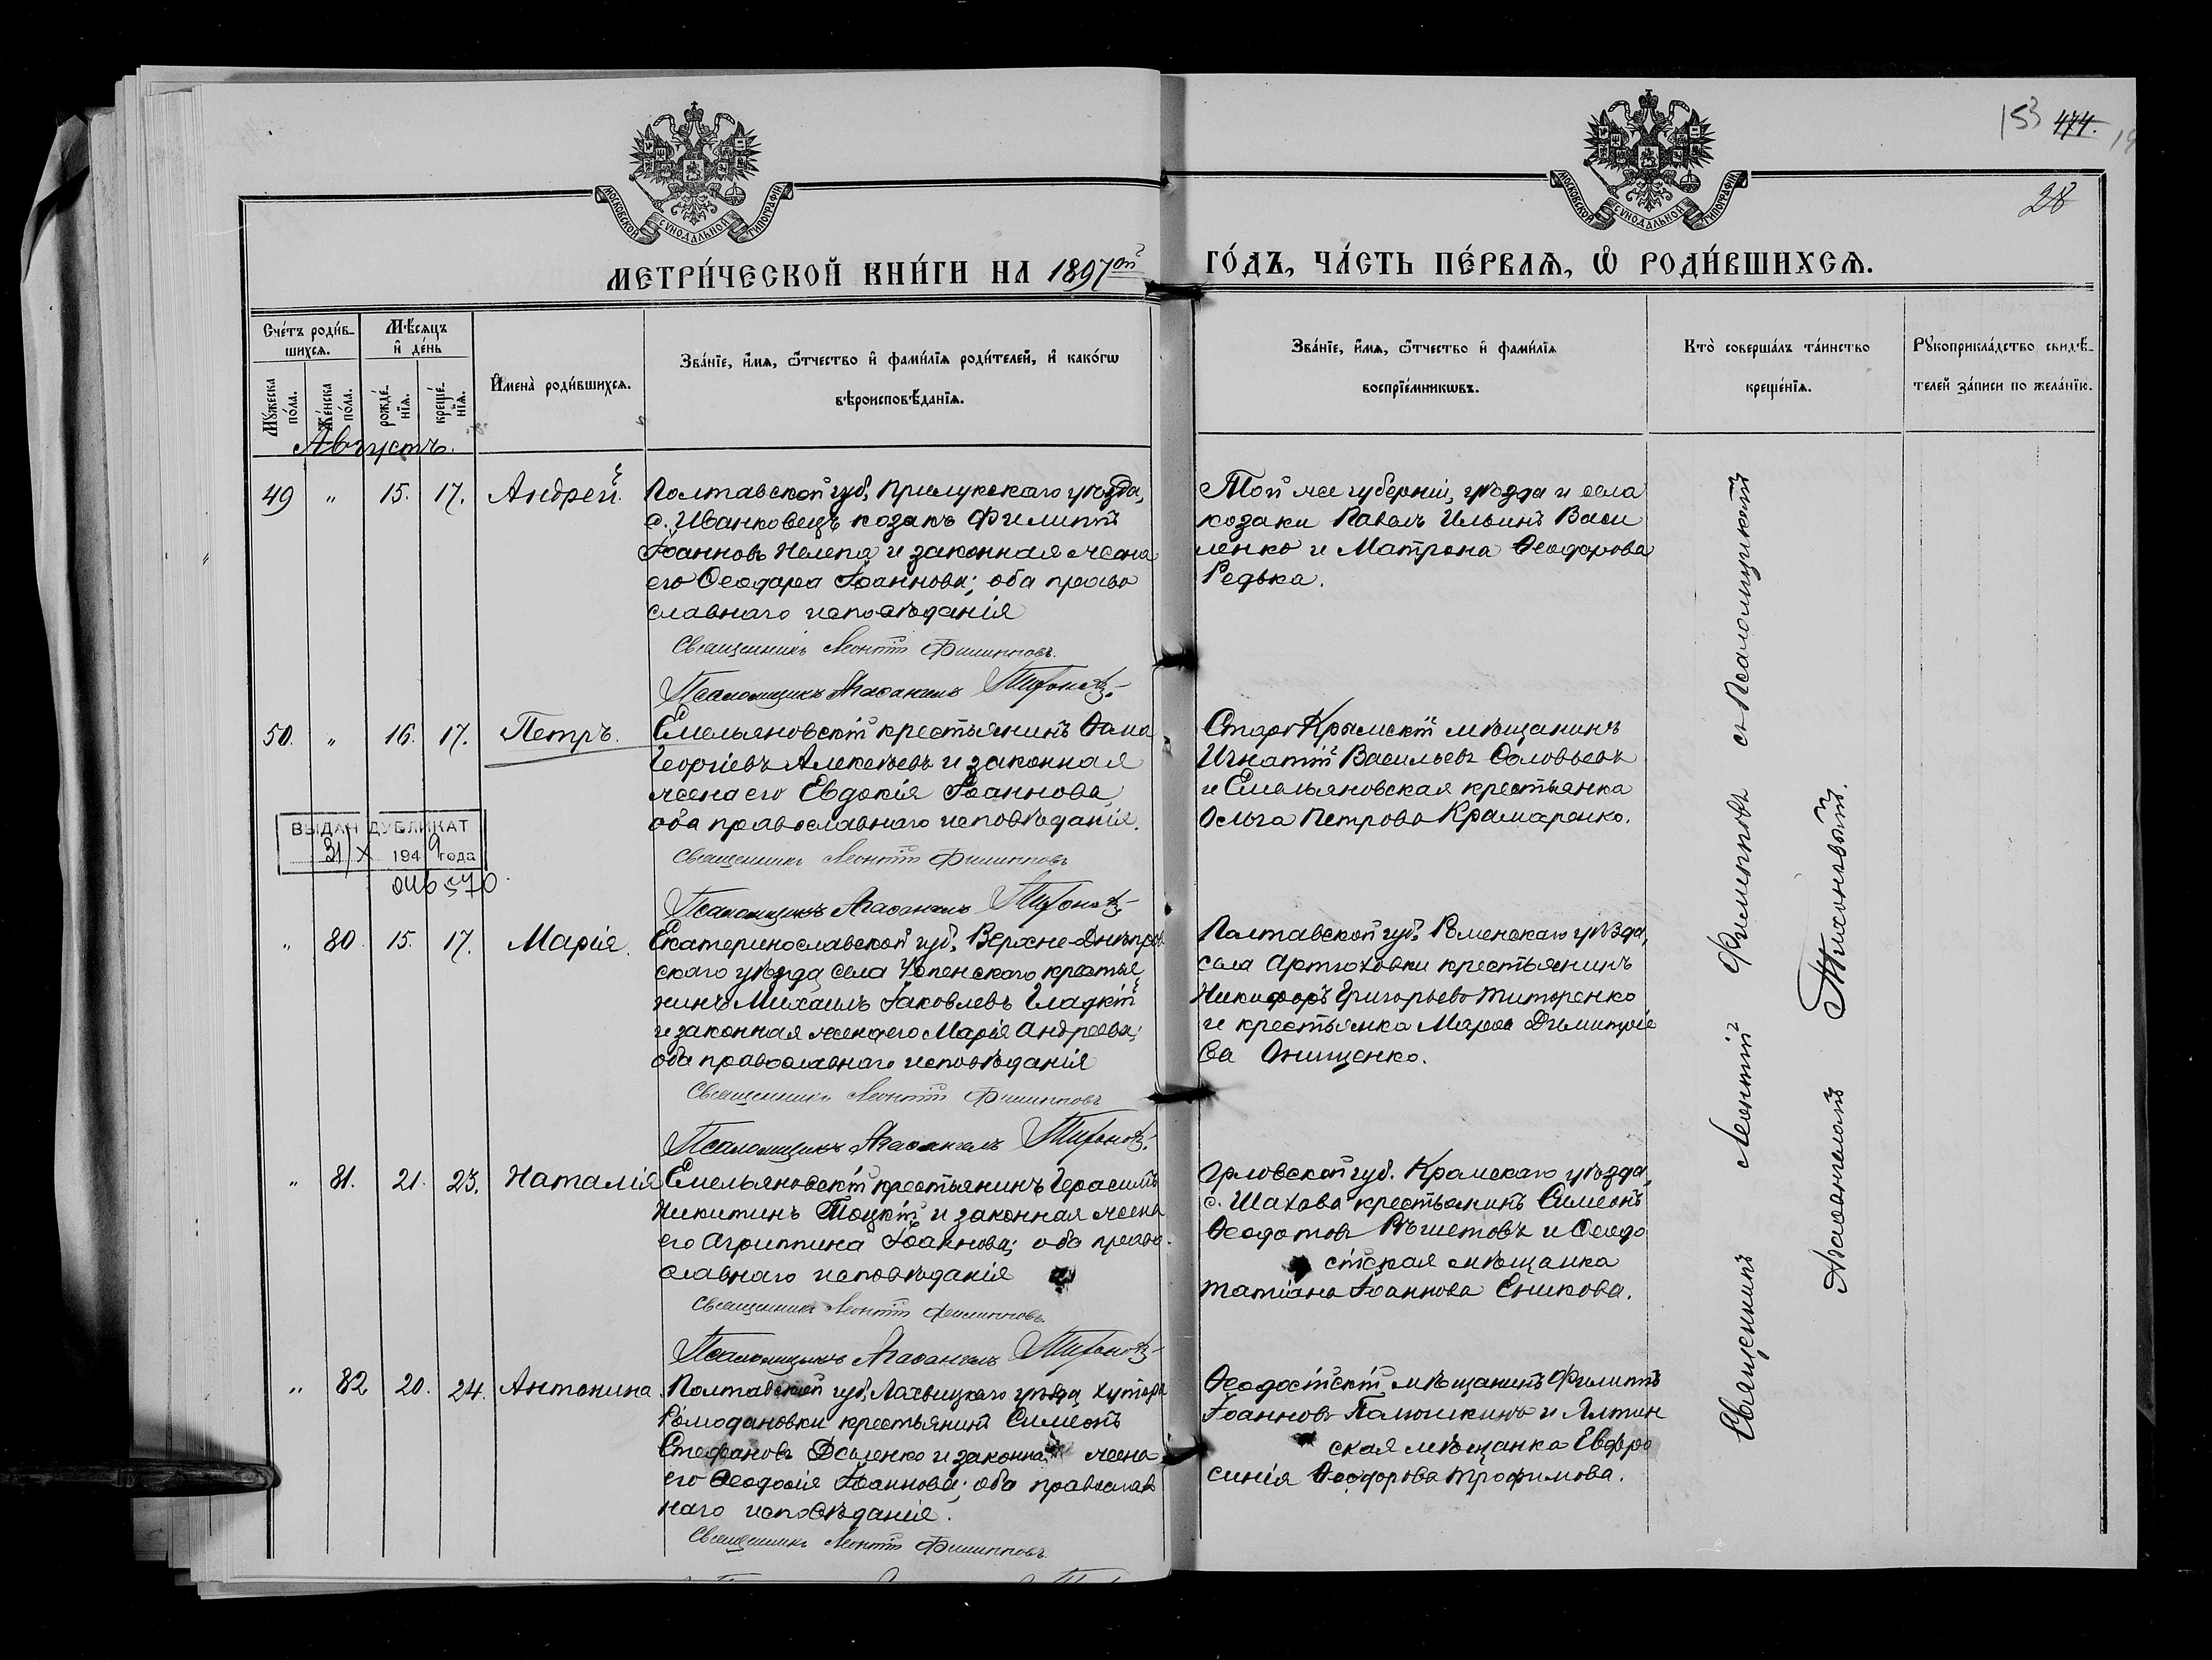 МОСКОВСКОЙ СУНОДАЛЬНОЙ ТИПОГРАФІИ
МОСКОВСКОЙ СУНОДАЛЬНОЙ ТИПОГРАФІИ
153 474.
28
МЕТРИ́ЧЕСКОЙ КНИ́ГИ НА 1897ой ГО́ДЪ, ЧА́СТЬ ПЕ́РВАѦ, Ѡ РОДИ́ВШИХСѦ.
Сче́тъ роди́в-
шихсѧ.
Мꙋ́жеска по́ла.
Же́нска по́ла.
Мѣ́сѧцъ
и҆ де́нь
рожде́-нїѧ.
креще́-нїѧ.
И҆мена̀ роди́вшихсѧ.
Зва́нїе, и҆́мѧ, ѻ҆́тчество и҆ фами́лїѧ роди́телей, и҆ како́гѡ
вѣроисповѣ́данїѧ.
Зва́нїе, и҆́мѧ, ѻ҆́тчество и҆ фами́лїѧ
воспрїе́мникѡвъ.
Кто̀ соверша́лъ та́инство
креще́нїѧ.
Рꙋкоприкла́дство свидѣ́-
телей за́писи по жела́нїю.
Августъ.
49 " 15. 17. Андрей.
Полтавской губ., Прилукскаго уѣзда,
с. Иванковецъ козакъ Филиппъ
Іоанновъ Нелепа и законная жена
его Ѳеодора Іоаннова; оба право
славнаго исповѣданія
Священникъ Леонтій Филипповъ.
Псаломщикъ Агаѳангелъ Тихонов
Той же губерніи, уѣзда и села
козаки Павелъ Ильинъ Васи
ленко и Матрона Ѳеодорова
Редька.
50. " 16. 17. Петръ.
Емельяновскій крестьянинъ Ѳома
Георгіевъ Алексѣевъ и законная
жена его Евдокія Іоаннова,
оба православнаго исповѣданія.
Священникъ Леонтій Филипповъ
Псаломщикъ Агаѳангелъ Тихонов
Старо Крымскій мѣщанинъ
Игнатій Васильевъ Соловьевъ
и Емельяновская крестьянка
Ольга Петрова Крамаренко.
ВЫДАН ДУБЛИКАТ
31/X 1949 года
046570
" 80. 15. 17. Марія.
Екатеринославской губ., Верхне-Днѣпров
скаго уѣзда села Успенскаго крестья
нинъ Михаилъ Іаковлевъ Гладкій
и законная жена его Марія Андреева;
оба православнаго исповѣданія
Священникъ Леонтій Филипповъ
Псаломщикъ Агаѳангелъ Тихонов
Полтавской губ. Роменскаго уѣзда,
села Артюховки крестьянинъ
Никифоръ Григорьевъ Титоренко
и крестьянка Марѳа Димитріе
ва Онищенко.
" 81. 21. 23. Наталія
Емельяновскій крестьянинъ Герасимъ
Никитинъ Тоцкій и законная жена
его Агриппина Іоаннова; оба право
славнаго исповѣданія
Священникъ Леонтій Филипповъ.
Псаломщикъ Агаѳангелъ Тихонов
Орловской губ. Кромскаго уѣзда,
с. Шахова крестьянинъ Симеонъ
Ѳеодотовъ Рѣшетовъ и Ѳеодо
сійская мѣщанка
Татіана Іоаннова Еникова.
" 82 20. 24. Антонина.
Полтавской губ. Лохвицкаго уѣзда, хутора
Ромодановки крестьянинъ Симеонъ
Стефановъ и законная жена
его Ѳеодосія Іоаннова; оба православ
наго исповѣданія.
Священникъ Леонтій Филипповъ
Ѳеодосійскій мѣщанинъ Филиппъ
Іоанновъ и Ялтин
ская мѣщанка Евфро
синія Ѳеодорова Трофимова.
Священникъ Леонтій Филипповъ съ Псаломщикомъ
Агаѳангеломъ Тихоновымъ.